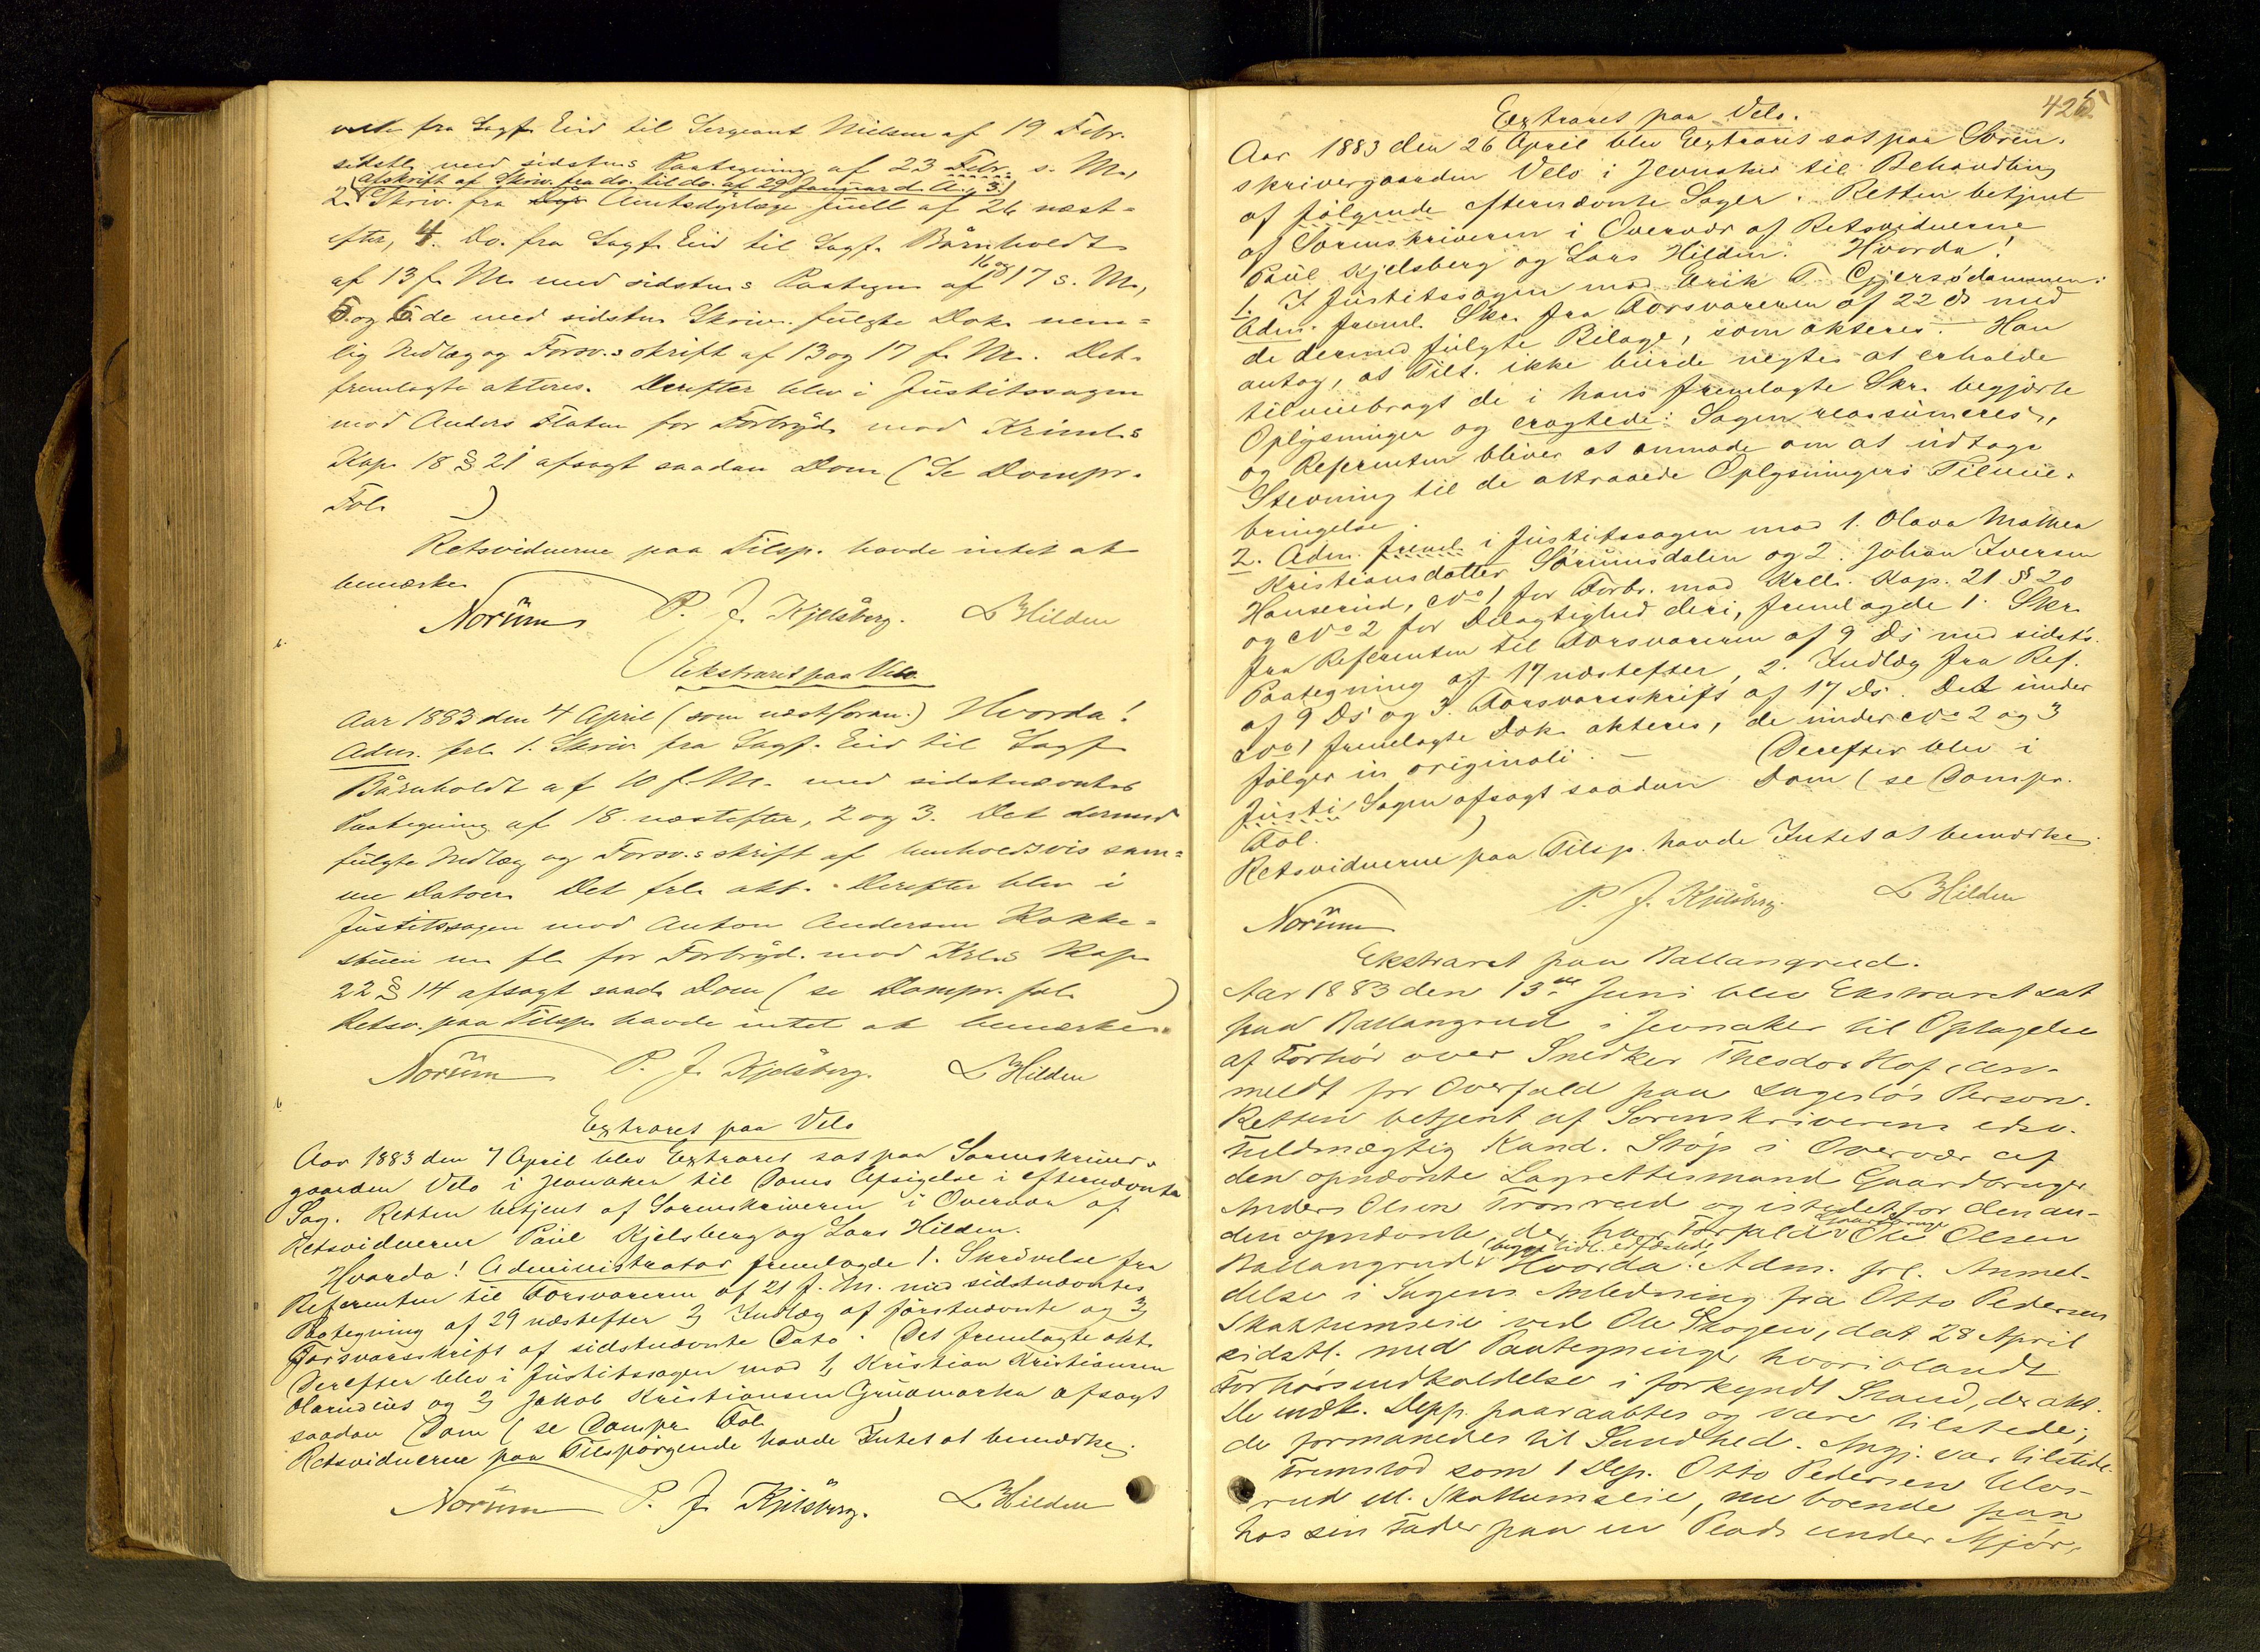 fra Sagf. Eid til Sergeant Nielsen af 19 Febr.
sidstl. med sidstns Paategning af 23 Febr. s. M.,
Afskrift af Skriv. fra do. til do. af 29 Januar d. A., 3.)
2. Skriv. fra Dyr Amtsdyrlæge Juell af 26 næst-
efter, 4. Do. fra Sagf. Eid til Sagf. Bårnholdt
af 13 f. M. med sidstns Paategn. af 16 og 17 s. M.,
5. og 6. de med sidstn. Skriv. fulgte Dok. nem-
lig Indlæg og Forsv.s skrift af 13 og 17 f. M. Det
fremlagte akteres. Derefter blev i Justitssagen
mod Anders Flaten for Forbryd. mod Kriml.s
Kap. 18 § 21 afsagt saadan Dom (Se Dompr.
Fol. )
Retsvidnerne paa Tilsp. havde intet at
bemærke.
Norum P. J. Kjelsberg. L Hilden
Ekstraret paa Velo
Aar 1883 den 4 April (som næstforan.) Hvorda!
Adm. frl. 1. Skriv. fra Sagf. Eid til Sagf.
Bårnholdt af 10 f. M. med sidstnævntes
Paategning af 18. næstefter, 2 og 3. Det dermed
fulgte Indlæg og Forsv.s skrift af henholdsvis sam-
me Datoer. Det frl. akt. Derefter blev i
Justitssagen mod Anton Andersen Kokke-
stuen m. fl. for Forbryd. mod Krl.s Kap.
22 § 14 afsagt saad. Dom (se Dompr. fol. )
Retsv. paa Tilsp. havde intet at bemærke.
Norum P. J. Kjelsberg. L Hilden
Extraret paa Velo
Aar 1883 den 7 April blev Extraret sat paa Sorenskriver-
gaarden Velo i Jevnaker til Doms Afsigelse i efternævnte
Sag. Retten betjent af Sorenskriveren i Overvær af
Retsvidnerne Paul Kjelsberg og Lars Hilden.
Hvorda! Administrator fremlagde 1. Skrivelse fra
Referenten til Forsvareren af 21 f. M. med sidstnævntes
Paategning af 29 næstefter 2) Indlæg af førstnævnte og 3)
Forsvarsskrift af sidstnævnte Dato. Det fremlagte akt.
Derefter blev i Justitssagen mod 1) Kristian Kristiansen
Olerudeie og 2) Jakob Kristiansen Gruamarka afsagt
saadan Dom (se Dompr. Fol. )
Retsvidnerne paa Tilspørgende havde Intet at bemærke.
Norum P. J. Kjelsberg. L Hilden
425
Extraret paa Velo.
Aar 1883 den 26 April blev Extraret sat paa Soren-
skrivergaarden Velo i Jevnaker til Behandling
af følgende efternævnte Sager. Retten betjent
af Sorenskriveren i Overvær af Retsvidnerne
Paul Kjelsberg og Lars Hilden. Hvorda!
1. I Justitssagen mod Erik T. Gjersødammen:
Adm. freml. Skr. fra Forsvareren af 22 ds med
de dermed fulgte Bilage, som akteres. – Han
antog, at Tilt. ikke burde negtes at erholde
tilveiebragt de i hans fremlagte Skr. begjærte
Oplysninger og eragtede: Sagen reassumeres,
og Referenten bliver at anmode om at udtage
Stevning til de attraaede Oplysningers Tilveie-
bringelse.
2. Adm. freml. i Justitssagen mod 1. Olava Mathea
Kristiansdatter Sørumsdalen og 2. Johan Iversen
Hanserud, No 1 for Forbr. mod Krll. Kap. 21 § 20
og No 2 for Delagtighed deri, fremlagde 1. Skr.
fra Referenten til Forsvareren af 9 Ds med sidsts.
Paategning af 17 næstefter, 2. Indlæg fra Ref.
af 9 Ds og 3. Forsvarsskrift af 17 Ds. Det under
No 1 fremlagte Dok. akteres, de under No 2 og 3
følger in originali. – Derefter blev i
Justi Sagen afsagt saadan Dom (se Dompr.
Fol. )
Retsvidnerne paa Tilsp. havde Intet at bemærke.
Norum P. J. Kjelsberg. L Hilden
Ekstraret paa Ballangrud.
Aar 1883 den 13de Juni blev Ekstraret sat
paa Ballangrud i Jevnaker til Optagelse
af Forhør over Snedker Theodor Hof, an-
meldt for Overfald paa sagesløs Person.
Retten betjent af Sorenskriverens edsv.
Fuldmægtig Kand. Støp i Overvær af
den opnævnte Lagrettesmand Gaardbruger
Anders Olsen Tronrud og istedetfor den an-
den opnævnte, der har Forfald Gaardbruger Ole Olsen
Ballangrud, Hvorda! Adm. frl. Anmel-
delse i Sagens Anledning fra Otto Pedersen
Skattumseie ved Ole Skogen, dat 28 April
sidstl. med Paategninger hvoriblandt
Forhørsindkaldelse i forkyndt Stand, der akt.
De indk. Depp. paaraabtes og vare tilstede;
de formanedes til Sandhed. Angj. var tilstede.
Fremstod som 1 Dep. Otto Pedersen
rud ell. Skattumseie, nu boende paa
hos sin Fader paa en Plads under Mjør-